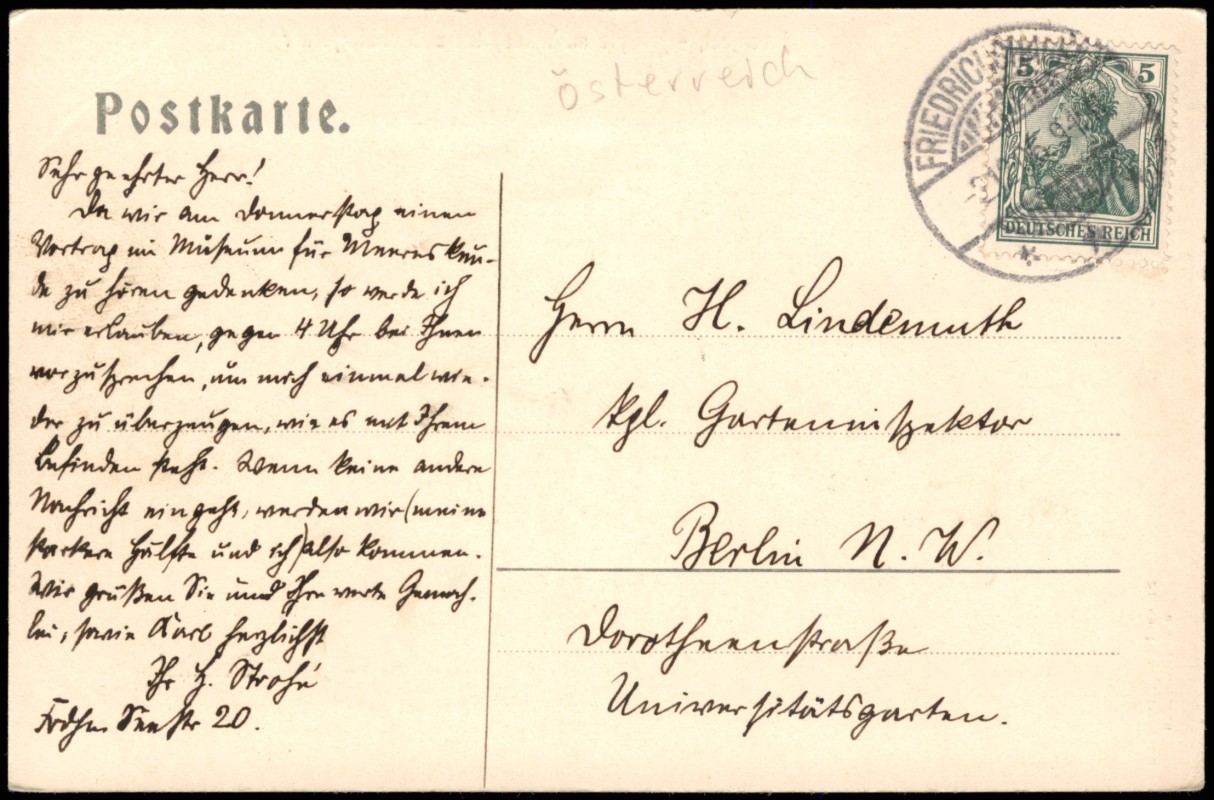 Österreich
Postkarte.
Sehr geehrter Herr!
Da wir am Donnerstag einen
Vortrag im Museum für Meereskun-
de zu hören gedenken, so werde ich
mir erlauben, gegen 4 Uhr bei Ihnen
vorzusprechen, um mich einmal wie-
der zu überzeugen, wie es mit Ihrem
Befinden steht. Wenn keine andere
Nachricht eingeht, werden wir (meine
stärkere Hälfte und ich) also kommen.
Wir grüßen Sie und Ihre werte Gemah-
lin, sowie Karl herzlichst
Ihr H. Strohé
Frdhn Seestr 20.
FRIEDRICH
5 5
DEUTSCHES REICH
Herrn H. Lindemuth
kgl. Garteninspektor
Berlin N. W.
Dorotheenstraße
Universitätsgarten.